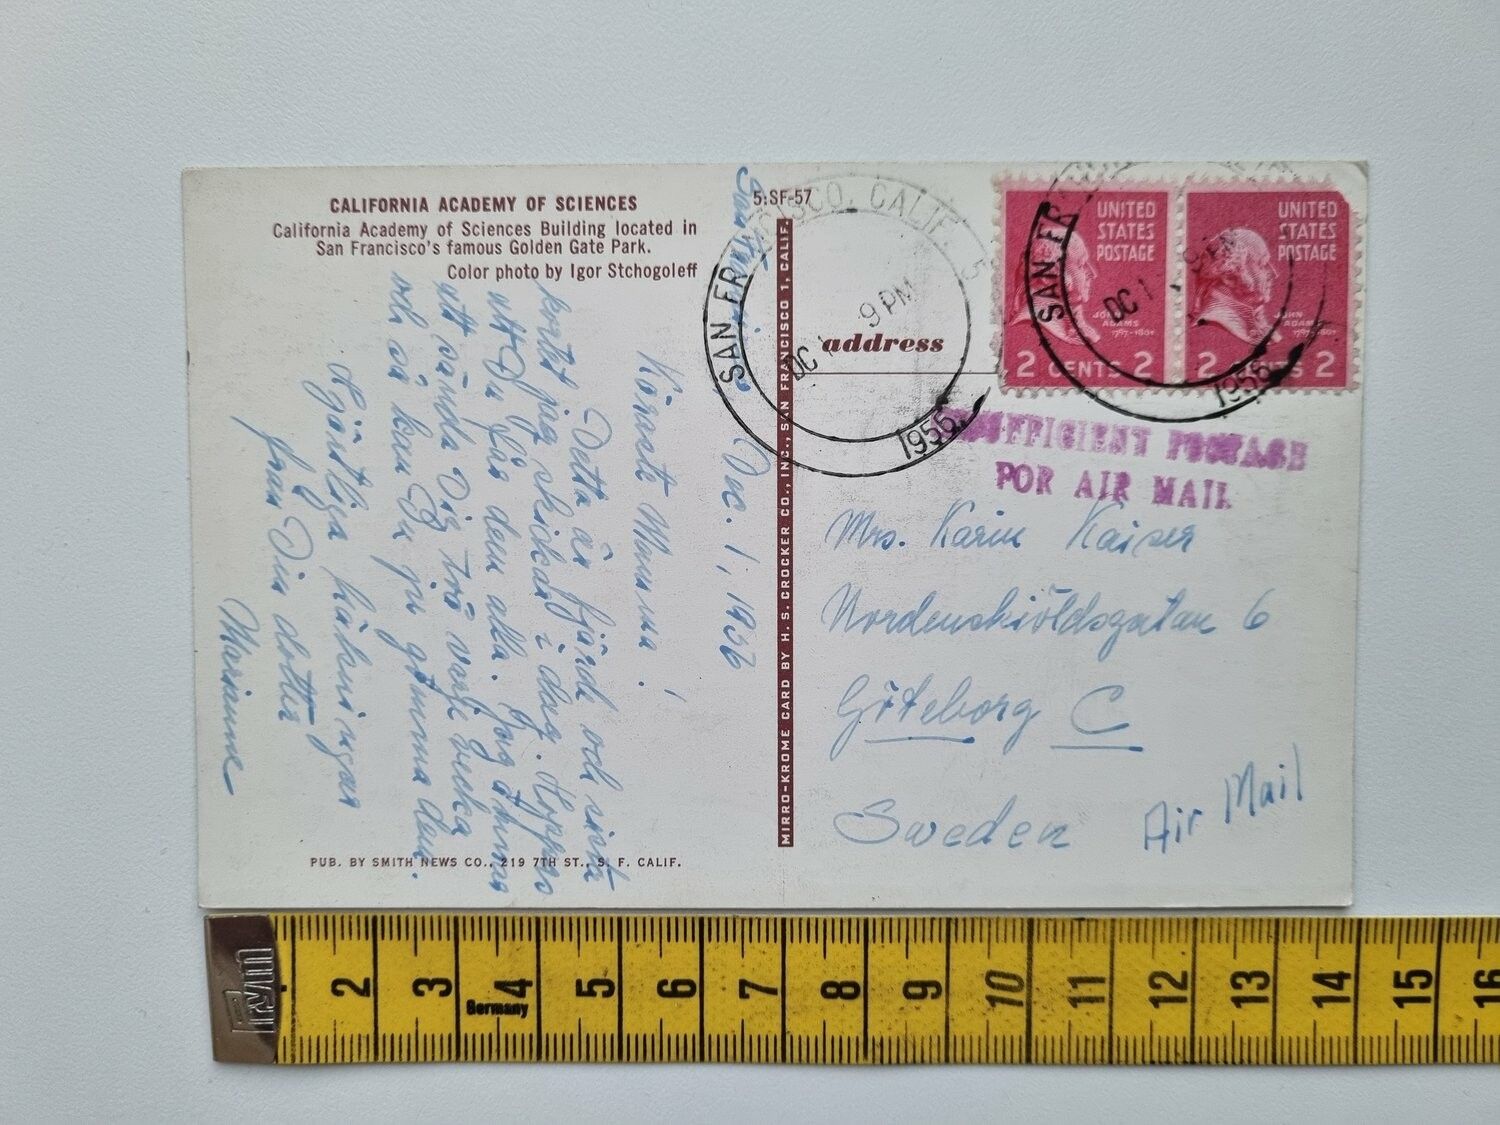 CALIFORNIA ACADEMY OF SCIENCES
California Academy of Sciences Building located in
San Francisco's famous Golden Gate Park.
Color photo by Igor Stchogoleff
San Francisco
Dec. 1, 1956
Käraste Mamma!
Detta är fjärde och sista
kortet jag skickar i dag. Hoppas
att Du får dem alla. Jag ämnar
att sända Dig två varje vecka
och så kan Du ju gömma dem.
Hjärtliga hälsningar
från Din dotter
Marianne
PUB. BY SMITH NEWS CO., 219 7TH ST., S. F. CALIF.
5:SF-57
MIRRO-KROME CARD BY H. S. CROCKER CO., INC., SAN FRANCISCO 1, CALIF.
address
SAN FRANCISCO, CALIF. 5
DC 1
9 PM
1956
UNITED
STATES
POSTAGE
JOHN
ADAMS
1797-1801
2 CENTS 2
UNITED
STATES
POSTAGE
JOHN
ADAMS
1797-1801
2 CENTS 2
SAN FR
DC 1
9 PM
1956
INSUFFICIENT POSTAGE
FOR AIR MAIL
Mrs. Karin Kaiser
Nordenskiöldsgatan 6
Göteborg C
Sweden
Air Mail
Prym
2 3 4 5 6 7 8 9 10 11 12 13 14 15 16
Germany